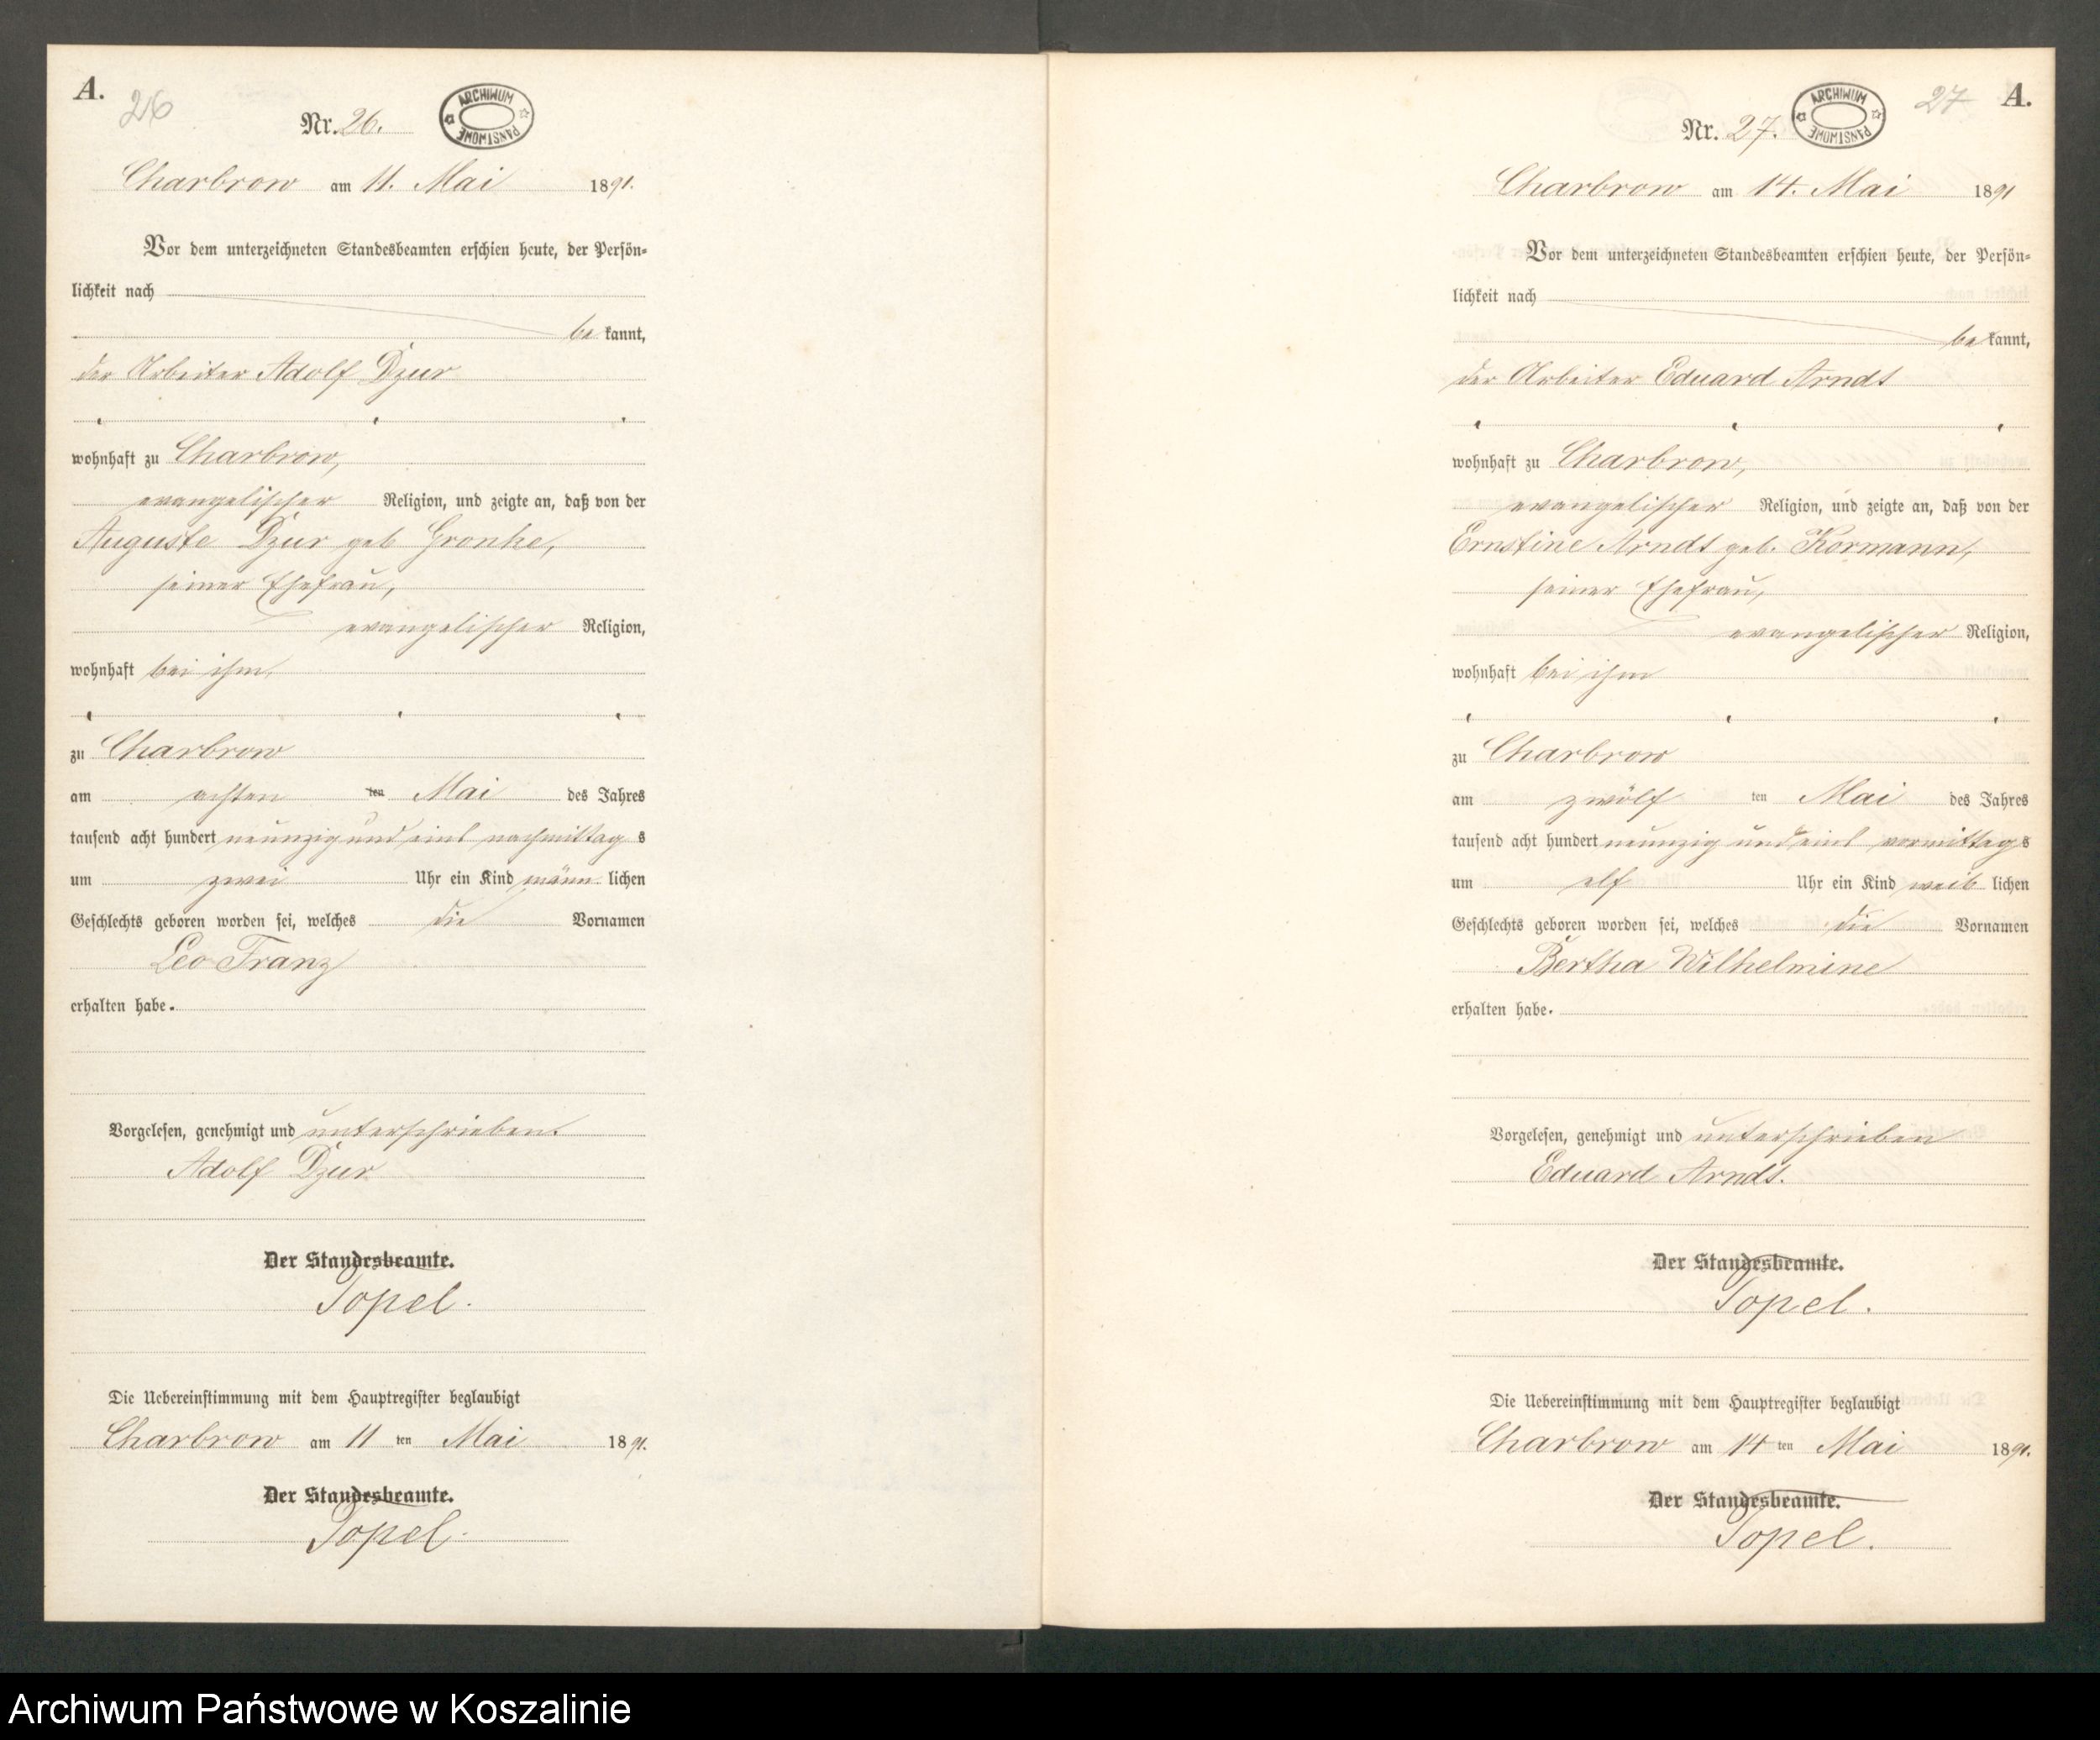 A.
26
Nr. 26.
ARCHIWUM PAŃSTWOWE
Charbrow am 11. Mai 1891.
Vor dem unterzeichneten Standesbeamten erschien heute, der Persön-
lichkeit nach
be kannt,
der Arbeiter Adolf Dzur
wohnhaft zu Charbrow,
evangelischer Religion, und zeigte an, daß von der
Auguste Dzur geb Gronke,
seiner Ehefrau,
evangelischer Religion,
wohnhaft bei ihm,
zu Charbrow
am achten ten Mai des Jahres
tausend acht hundert neunzig und eins nachmittag s
um zwei Uhr ein Kind männ lichen
Geschlechts geboren worden sei, welches die Vornamen
Leo Franz
erhalten habe.
Vorgelesen, genehmigt und unterschrieben.
Adolf Dzur
Der Standesbeamte.
Topel.
Die Uebereinstimmung mit dem Hauptregister beglaubigt
Charbrow am 11 ten Mai 1891.
Der Standesbeamte.
Topel.
27 A.
Nr. 27.
ARCHIWUM PAŃSTWOWE
Charbrow am 14. Mai 1891
Vor dem unterzeichneten Standesbeamten erschien heute, der Persön-
lichkeit nach
be kannt,
der Arbeiter Eduard Arndt
wohnhaft zu Charbrow,
evangelischer Religion, und zeigte an, daß von der
Ernstine Arndt geb. Kormann,
seiner Ehefrau,
evangelischer Religion,
wohnhaft bei ihm
zu Charbrow
am zwölf ten Mai des Jahres
tausend acht hundert neunzig und eins vormittags
um elf Uhr ein Kind weib lichen
Geschlechts geboren worden sei, welches die Vornamen
Bertha Wilhelmine
erhalten habe.
Vorgelesen, genehmigt und unterschrieben
Eduard Arndt.
Der Standesbeamte.
Topel.
Die Uebereinstimmung mit dem Hauptregister beglaubigt
Charbrow am 14 ten Mai 1891.
Der Standesbeamte.
Topel.
Archiwum Państwowe w Koszalinie